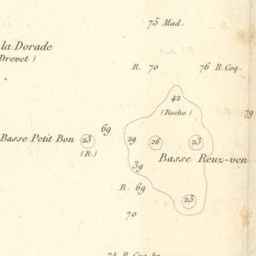 75 Mad.
la Dorade
Drevet)
R. 70
76 R. Coq.
42
(Roche)
79
69
Basse Petit Bon 23
(R.)
29
26
23
34
Basse Reuz-ven
R. 69
23
70